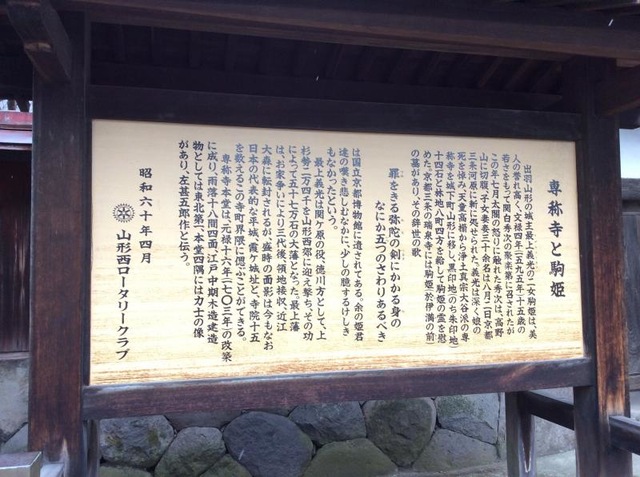 専称寺と駒姫
出羽山形の城主最上義光の二女駒姫は、美
人の誉れ高く、文禄四年（一五九五年）十五歳の
若さをもって関白秀次の聚楽第に召されたが
この年七月太閤の怒りに触れた秀次は、高野
山に切腹、子女妻妾三十余名は八月二日京都
三条河原に斬に処せられた。義光は深く娘の
死を悼み、天童高擶から浄土真宗大谷派の専
称寺を城下町山形に移し、黒印地（のち朱印地）
十四石と林地八町四方を給して駒姫の霊を慰
めた。京都三条の瑞泉寺には駒姫（於伊満の前）
の墓があり、その辞世の歌
罪をきる弥陀の剣にかかる身の
なにか五つのさわりあるべき
は国立京都博物館に遺されてある。余の姫君
達の嘆き悲しむなかに、少しの臆するけしき
もなかったという。
最上義光は関ケ原の役、徳川方として、上
杉勢二万四千を山形西郊に迎え撃ち、その功
によって五十七万石の大藩となった。最上藩
は、お家争いにより三代後、領地接収、近江
大森に転封されるが、盛時の面影は今もなお
日本の代表的な平城、霞ケ城址と、寺院十五
を数えるこの寺町界隈に偲ぶことができる。
専称寺本堂は、元禄十六年（一七〇三年）の改築
に成り、雨落十八間四面、江戸中期木造建造
物としては東北第一、本堂四隅には力士の像
があり、左甚五郎作と伝う。
昭和六十年四月
山形西ロータリークラブ